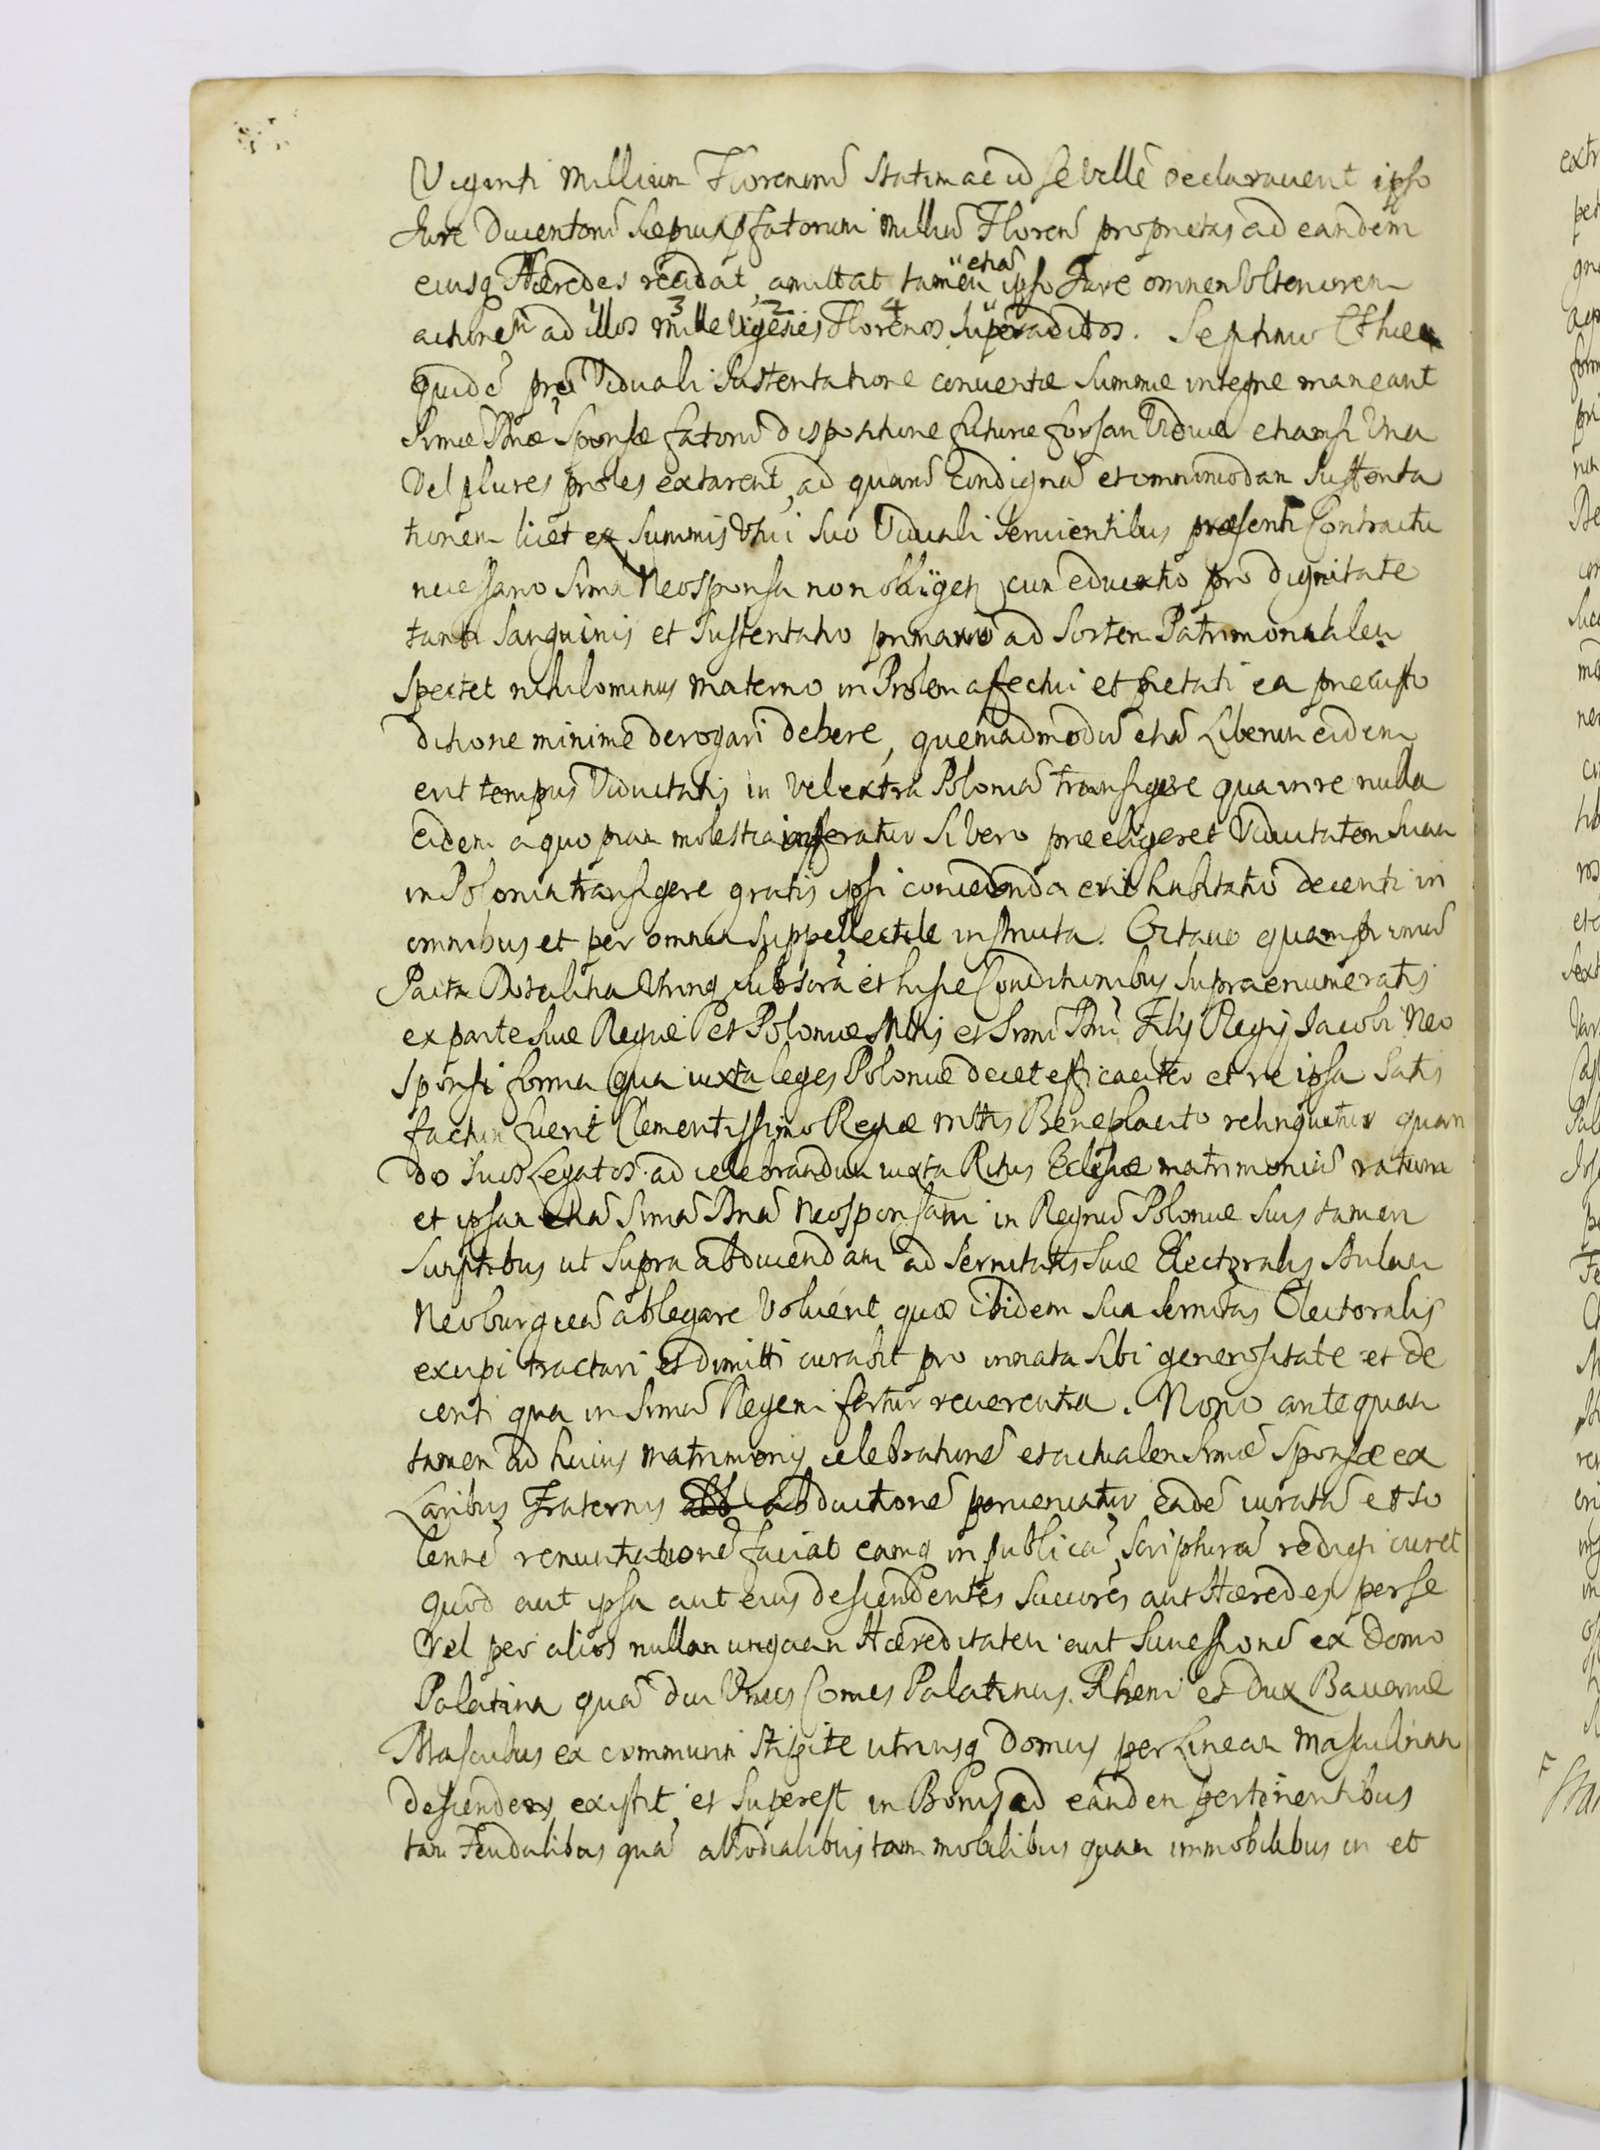 Viginti Millium Florenorū statim ac id se velle declarauerit ipso
Iure Ducentorū saepius fatorum Milliū Florenū proprietas ad eandem
eiusq Haeredes recidat, amittat tamen etiā ipso Iure omnem Vlteriorem
actionem ad illos mille Vigenies Florenos superadditos. Septimo Et haec
quidē pro Viduali Sustentatione conuentae summae integre maneant
Sermae Dnae Sponsae fatorū dispositione futurae forsan Viduae etiamsi Vna
Vel plures proles extarent, ad quarū condignā et omnimodam sustenta
tionem licet ex summis Vsui suo Viduali seruientibus praesenti Contractu
necessario Serma Neosponsa non obligetr, cum educatio pro dignitate
tanti Sanguinis et Sustentatio primario ad Sortem Patrimonialem
Spectet nihilominus materno in Prolem affectui et pietati ea precusto
ditione minime derogari debere, quemadmodū etiā Liberum eidem
erit tempus Viduitatis in vel extra Poloniā transigere qua in re nulla
eidem a quopiam molestia inferatur si vero praeeligeret Viduitatem suam
in Polonia transigere gratis ipsi concedenda erit habitatio decenti in
omnibus et per omnia suppellectile instructa. Octauo quamprimū
Pacta Dotalitia Vtrinq Subscra et hisce Conditionibus supra enumeratis
ex parte suae Regiae et Poloniae Mttis et Sermi Dni Filij Regij Iacobi Neo
sponsi forma qua iuxta leges Poloniae decet efficaciter et re ipsa satis
factum fuerit Clementissimo Regiae Mttis Beneplacito relinquetur quan
do suos Legatos ad celebrandum iuxta Ritus Eclesiae matrimoniū ratum
et ipsam etiā Sermā Dnā Neosponsam in Regnū Poloniae suis tamen
sumptibus ut supra abducendam ad Sernitatis suae Electoralis Aulam
Neoburgicā ablegare Voluerit quos ibidem sua sernitas Electoralis
excipi tractari et dimitti curabit pro innata sibi generositate et de
centi qua in Sermū Regem fertur reuerentia. Nono antequam
tamen ad huius matrimonij celebrationē et actualem Sermae Sponsae ex
Laribus Fraternis abductionē perueniatur eadē iuratā et so
lennē renuntiationē faciat eamq in publicā scripturā redigi curet
quod aut ipsa aut eius descendentes succores aut Haeredes per se
Vel per alios nullam unquam Haereditatem aut successionē ex Domo
Palatina quā diu Vnus Comes Palatinus Rheni et Dux Bauariae
Masculus ex communi stipite utriusq Domus per Lineam masculinam
descendens existit et superest in Bonis ad eandem pertinentibus
tam Feudalibus quā allodialibus tam mobilibus quam immobilibus in et